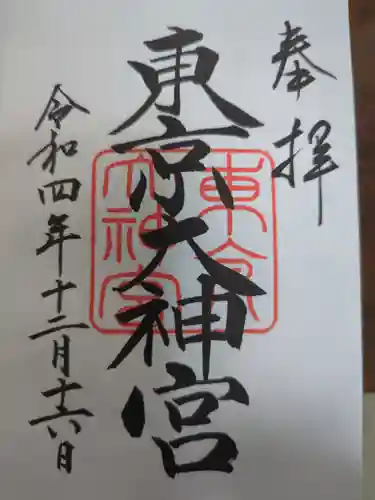 奉拝
東京大神宮
東京大神宮
令和四年十二月十六日